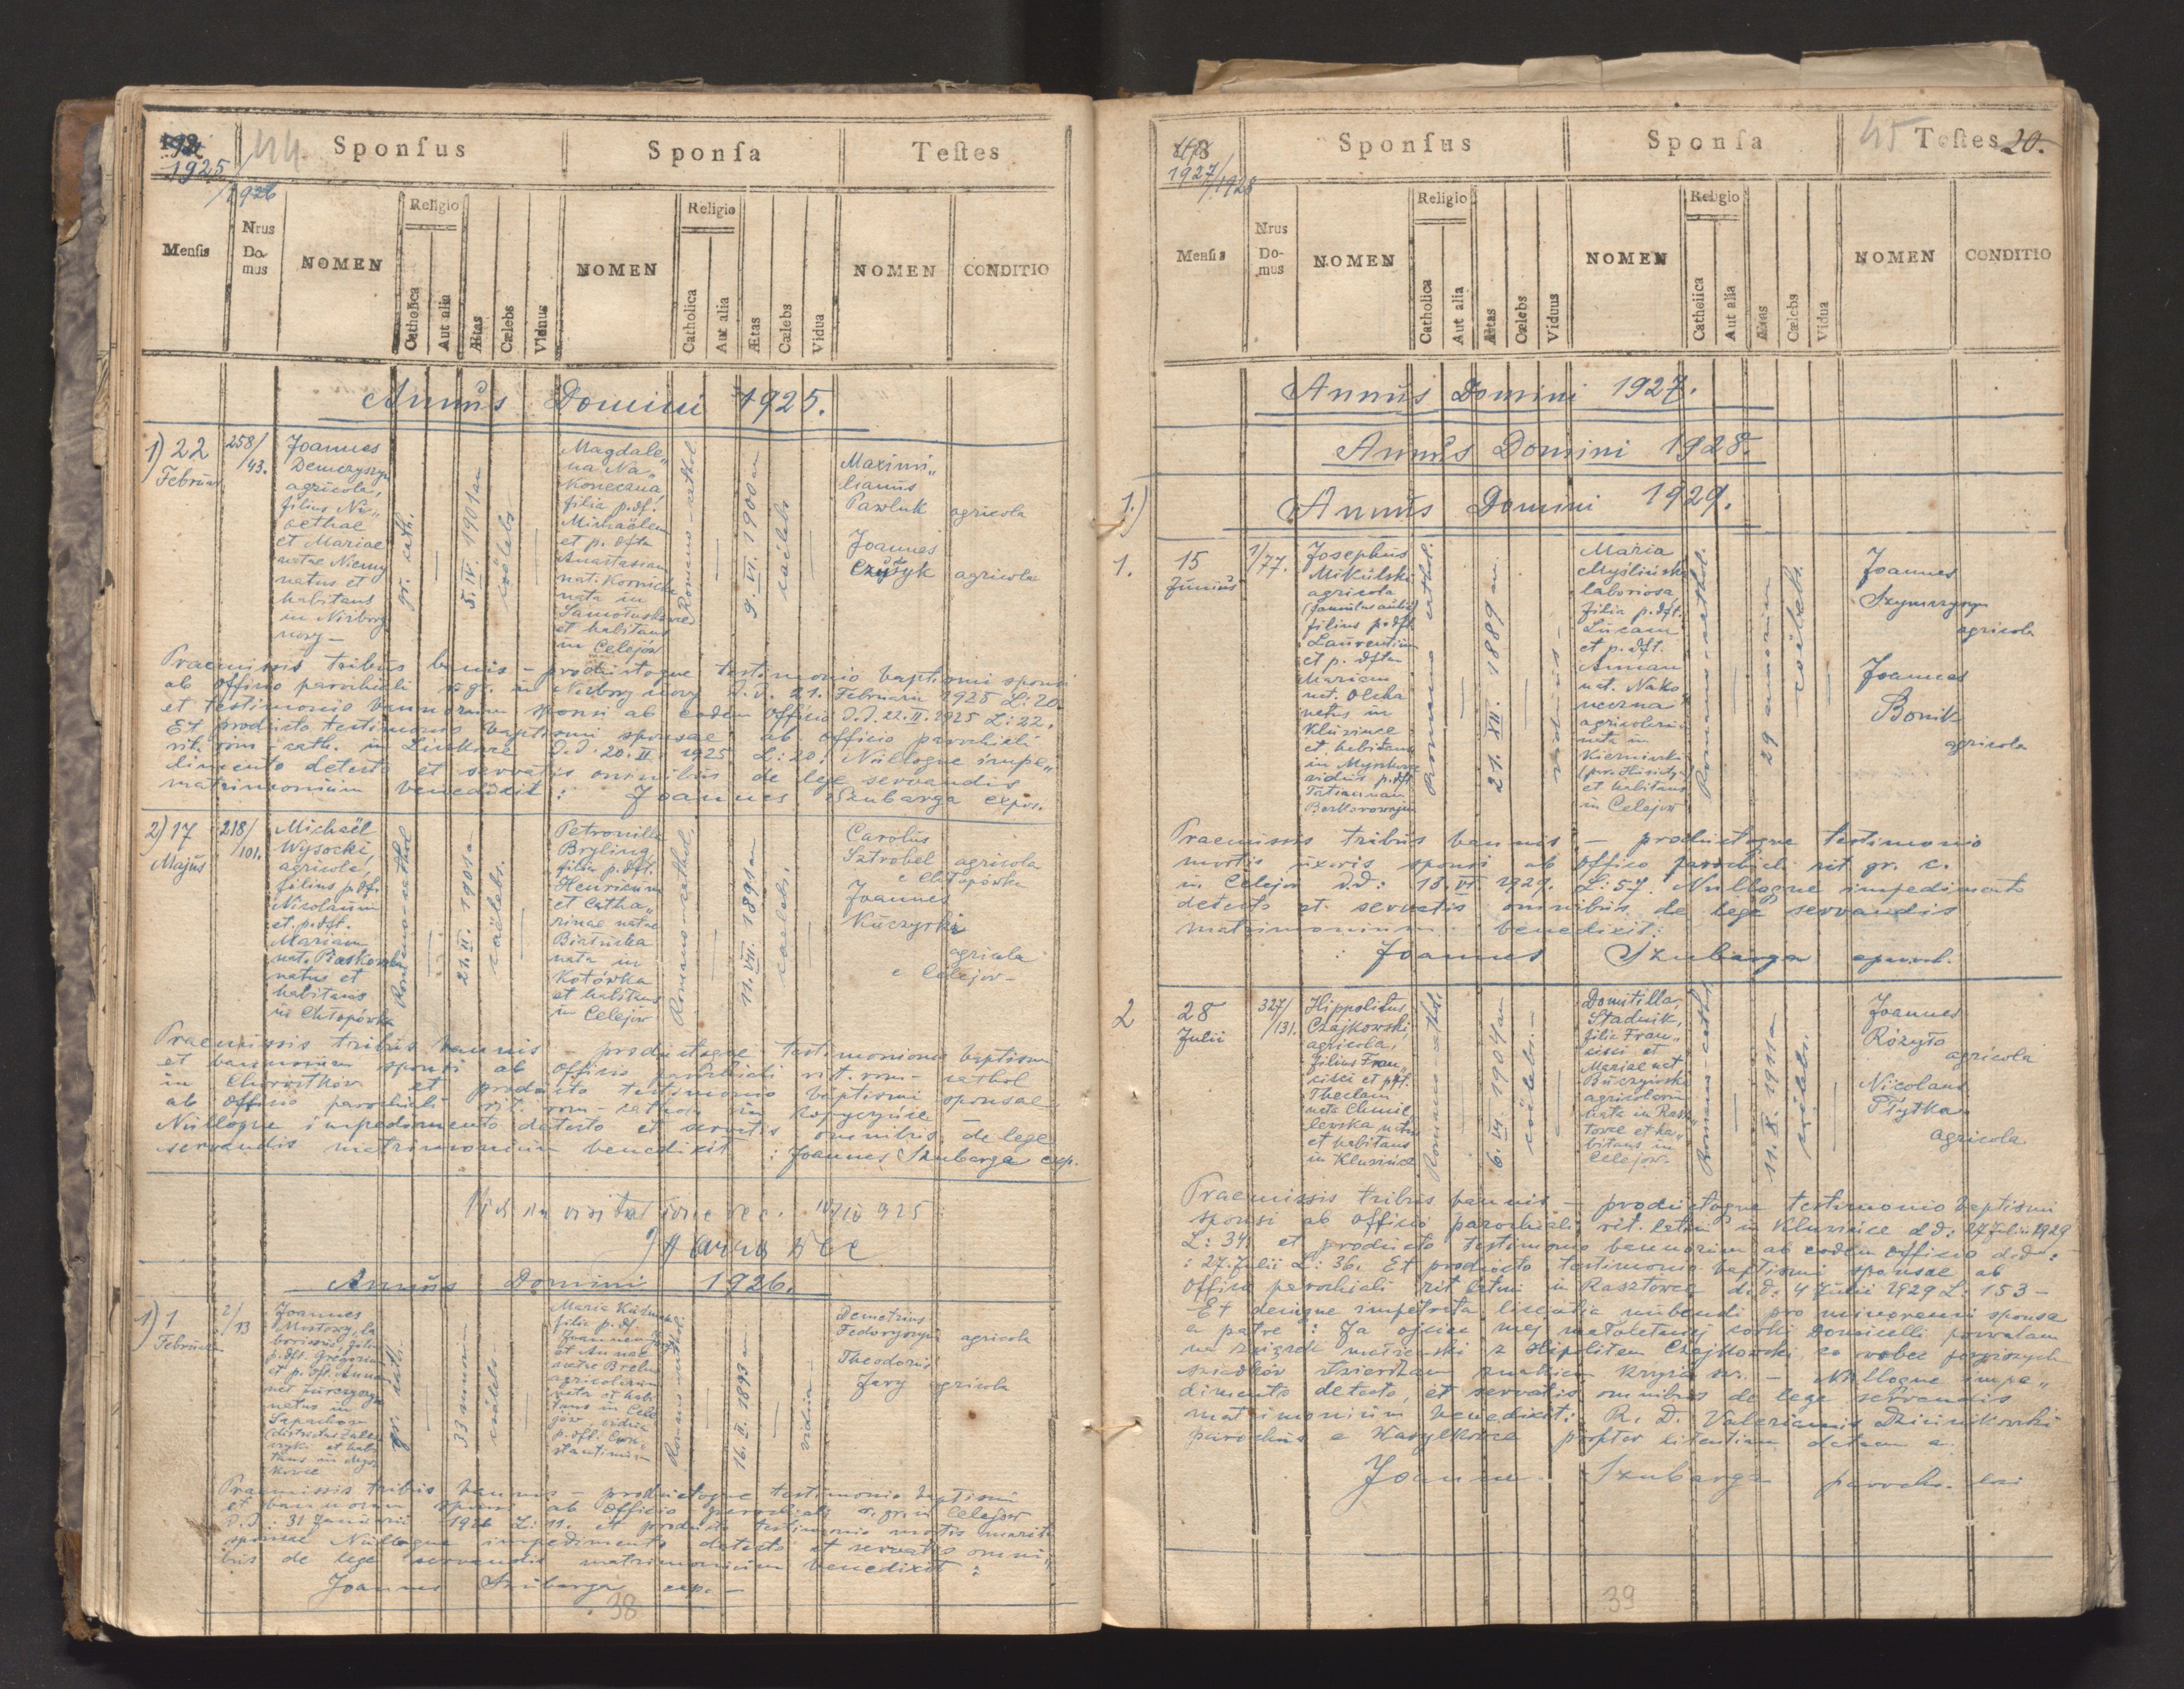 1925
/1926
44
Sponſus
Sponſa
Teſtes
Menſis
Nrus
Do-
mus
NOMEN
Religio
Catholica
Aut alia
Ætas
Cælebs
Viduus
NOMEN
Religio
Catholica
Aut alia
Ætas
Cælebs
Vidua
NOMEN
CONDITIO
Annus Domini 1925.
1) 22
Februar
258/
43.
Joannes
Demczyszyn
agricola,
filius Ni„
cethae
et Mariae
natae Niemy
natus et
habitans
in Niżborg
nowy –
gr. cath.
5. IV. 1901 an
coëlebs
Magdale„
na Na„
Koneczna,
filia p.df.
Michaëlem
et p. dfta
Anastasiam
nat. Kornicka
nata in
et habitans
in Celejów
Romano-cathol
9. VI. 1900 an
caëlebs
Maximi„
lianus
Pawluk agricola
Joannes
Czyżyk agricola
Praemissis tribus bannis – productoque testimonio baptismi sponsi
ab officio parochiali r. gr. in Niżborg nowy d.d. 21. Februarii 1925 L: 20.
et testimonio bannorum sponsi ab eodem Officio d.d. 22. II. 1925 L: 22.
Et producto testimonio baptismi sponsae ab officio parochiali
rit. rom – cath. in Liczkowce d.d. 20. II. 1925. L: 20. Nulloque impe„
dimento detecto et servatis omnibus de lege servandis
matrimonium benedixit : Joannes Szubarga expos.
2) 17
Majus
218/
101.
Michaël
Wysocki,
agricola,
filius p.df.
Nicolaum
et. p. dft.
Mariam
nat. Piaskowska
natus et
habitans
in Chłopówka
Romano-cathol
21. II. 1901 a–
caëlebs.
Petronilla
Bryling
filia p. dft.
Henricum
et Catha„
rinae natae
Białucha
nata in
Kotówka
et habitans
in Celejów
Romano-cathol.
11. VII. 1891 an
caelebs.
Carolus
Sztrobel agricola
e Chłopówka
Joannes
Kuczyrka
agricola
e Celejow –
Praemissis tribus bannis – productoque testimonio baptism
et bannorum sponsi ab Officio parochiali rit. rom – cathol
in Chorostków et producto testimonio baptismi sponsae
ab Officio parochiali rit. rom – cathol. in Kopyczyńce –
Nulloque impedimento detecto et servatis omnibus de lege
servandis matrimonium benedixit : Joannes Szubarga exp.
Annus Domini 1926.
1) 1
Februar
2/
13
Joannes
Mostowy, la
boriosus, filius
p.dft. Gregorium
et p. dft. Anna
natus in
districtus Zales
zczyki et habi
tans in
gr. cath.
33 annorum
coëlebs –
filia p. df.
Joannem
et Annae
agricolarum
nata et habi
tans in Cele
jów, vidua
p. dft. Con„
stantinum
Romano-cathol.
16. II. 1893 an
vidua –
Demetrius
Fedoryszyn agricola
Theodorus
Jary agricola
Praemissis tribus bannis – productoque testimonio baptismi
et bannorum sponsi ab Officio parochiali r. gr. in Celejów
d.d: 31 Januarii 1926 L: 11. et producto testimonio mortis mariti
sponsae Nulloque impedimento detecto et servatis omni„
bus de lege servandis matrimonium benedixit :
Joannes Szubarga exp. –
38
1927/
/1928
Sponſus
Sponſa
45
Teſtes
20.
Menſis
Nrus
Do-
mus
NOMEN
Religio
Catholica
Aut alia
Ætas
Cælebs
Viduus
NOMEN
Religio
Catholica
Aut alia
Ætas
Cælebs
Vidua
NOMEN
CONDITIO
Annus Domini 1927.
Annus Domini 1928.
1.)
Annus Domini 1929.
1.
15
Junius
1/
77.
Josephus
Mikulski
agricola
filius p. dft.
Laurentium
et p. dftm
Mariam
nat. Olcha
natus in
Kluvince
et habitans
in Myszkowce
viduus p. dft.
Tatiannam
Romano cathol.
21. XII. 1889 an.
viduus –
Maria
Myślińska
laboriosa,
filia p. dft.
Lucam
et p. dft.
Annam
nat. Nako„
neczna
agricolarum
nata in
et habitans
in Celejow
Romano-cathol.
29 annorum
coëlebs.
Joannes
Szymczyszyn
agricola
Joannes
Bonik
agricola
Praemissis tribus bannis – productoque testimonio
mortis uxoris sponsi ab Officio parochiali rit. gr. c.
in Celejow d.d: 18. VI. 1929. L: 57. Nulloque impedimento
detecto et servatis omnibus de lege servandis
matrimonium benedixit:
: Joannes Szubarga
2
28
Julii
327/
131.
Hippolitus
Czajkowski,
agricola,
filius Fran„
cisci et pdft.
Theclam
nata Chmie„
lewska natus
et habitans
in Kluvince
Romano-cathol.
6. VI. 1904 an
coëlebs. –
Domitilla,
Stadnik,
filia Fran„
cisci et
Mariae nat.
agricolarum
nata in Rasz„
towce et ha„
bitans in
Celejow.
Romano-cathol
11. X. 1911 a
coëlebs.
Joannes
Różyło
agricola
Nicolaus
Płytka
agricola
Praemissis tribus bannis – productoque testimonio baptismi
sponsi ab officio parochiali rit. latini in Kluvince d.d: 27 Julii 1929
L: 34. et producto testimonio bannorum ab eodem officio d.d.:
: 27. Julii L: 36. Et producto testimonio baptismi sponsae ab
Officio parochiali rit latini in Rasztowce d.d: 4 Julii 1929 L: 153 –
Et denique impetrata licentia nubendi pro minorenni sponsa
a patre : Ja ojciec mej małoletniej córki Domicelli pozwalam
na związek małżeński z Hipolitem Czajkowski, co wobec poniższych
świadków stwierdzam znakiem krzyża św. – Nulloque impe„
dimento detecto, et servatis omnibus de lege servandis
matrimonium benedixit: R. D. Valerianus Dziunikowski
parochus e Wasylkowce propter licentiam datam a
Joanne Szubarga parocho loci
39